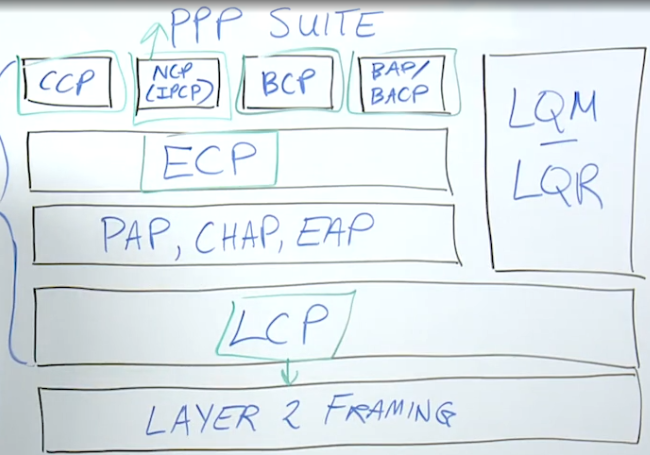 PPP SUITE
CCP
NCP
(IPCP)
BCP
BAP/
BACP
LQM
LQR
ECP
PAP, CHAP, EAP
LCP
LAYER 2 FRAMING